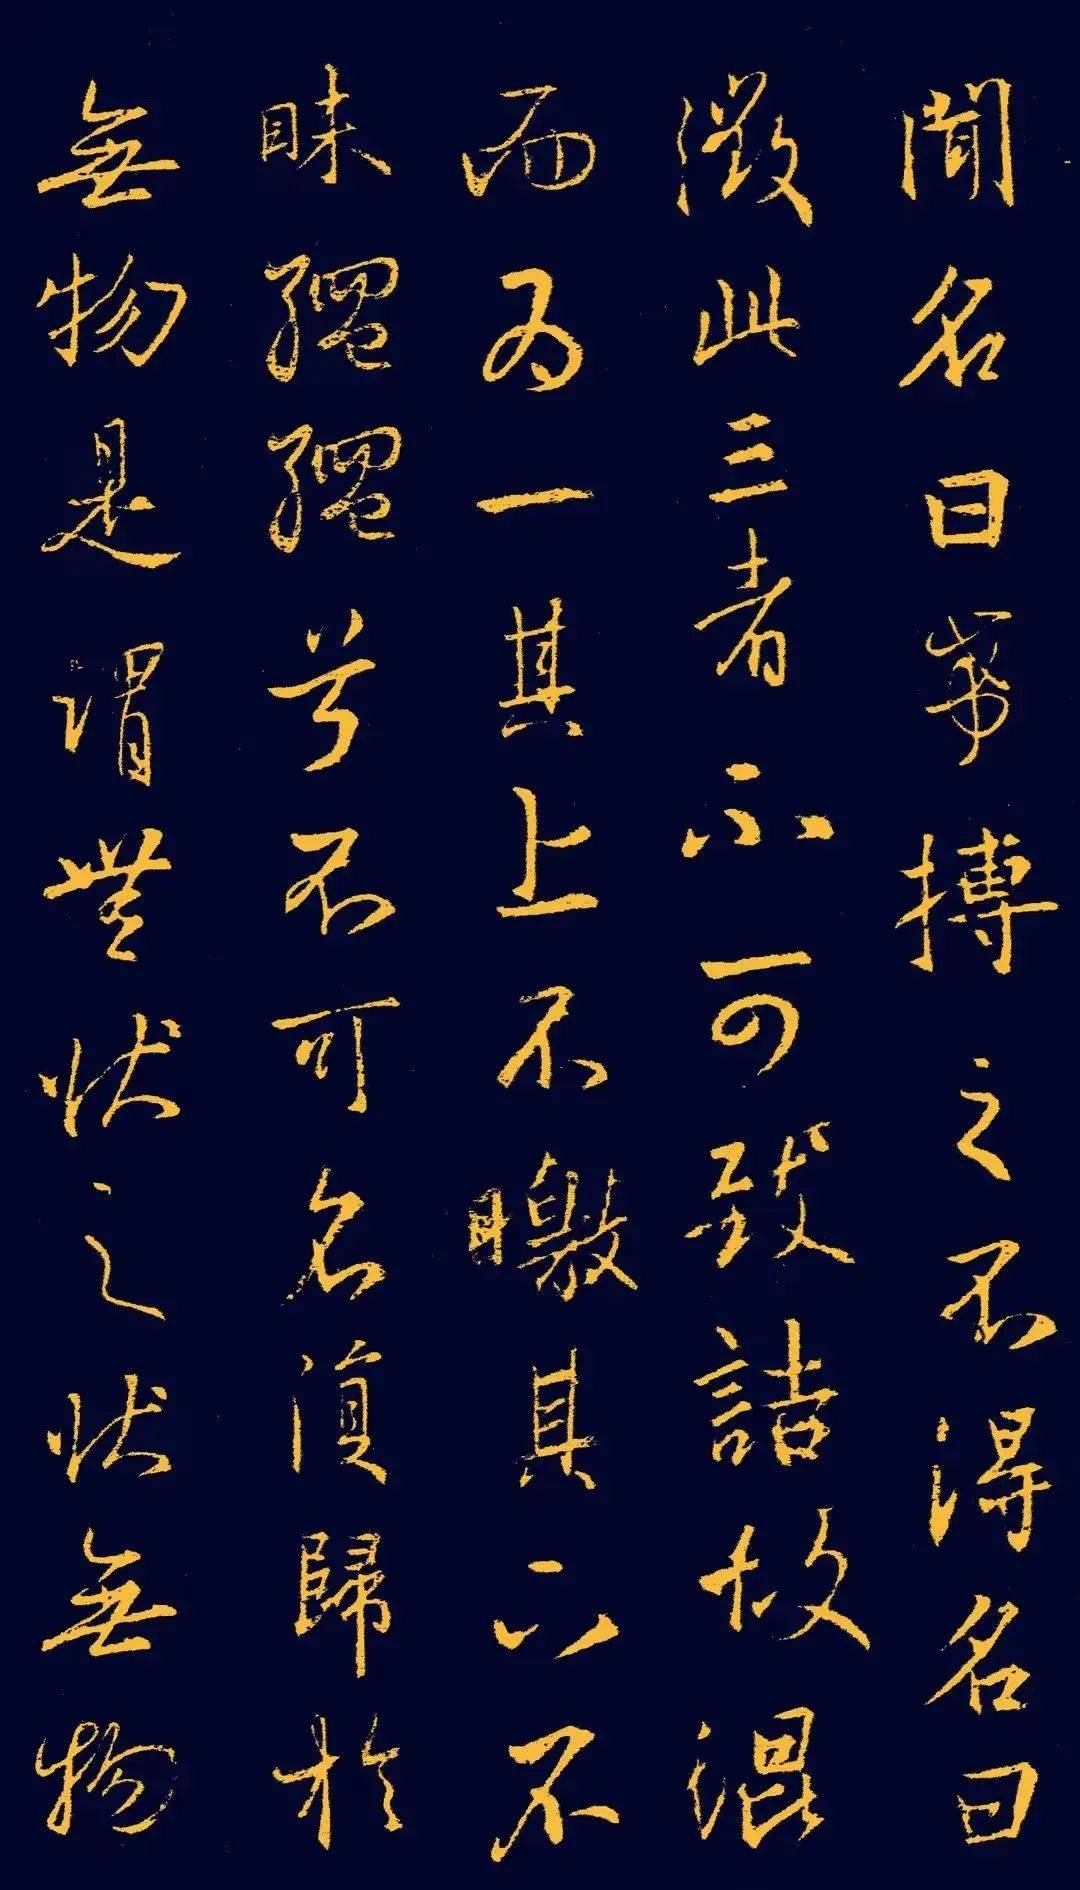 聞名曰希搏之不得名曰
微此三者不可致詰故混
而為一其上不皦其下不
昧繩繩兮不可名復歸於
無物是謂無狀之狀無物